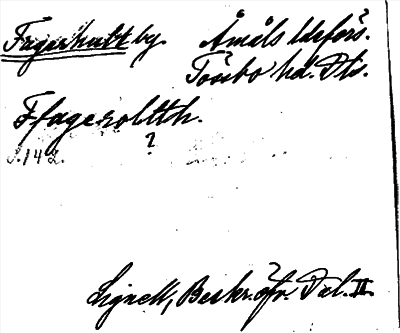 Fagerhult by. Åmåls ldsförs.
Tössbo hd. Dls.
Ffagerolltth.
?
S. 142.
Lignell, Beskr. öfv. Dal. II.